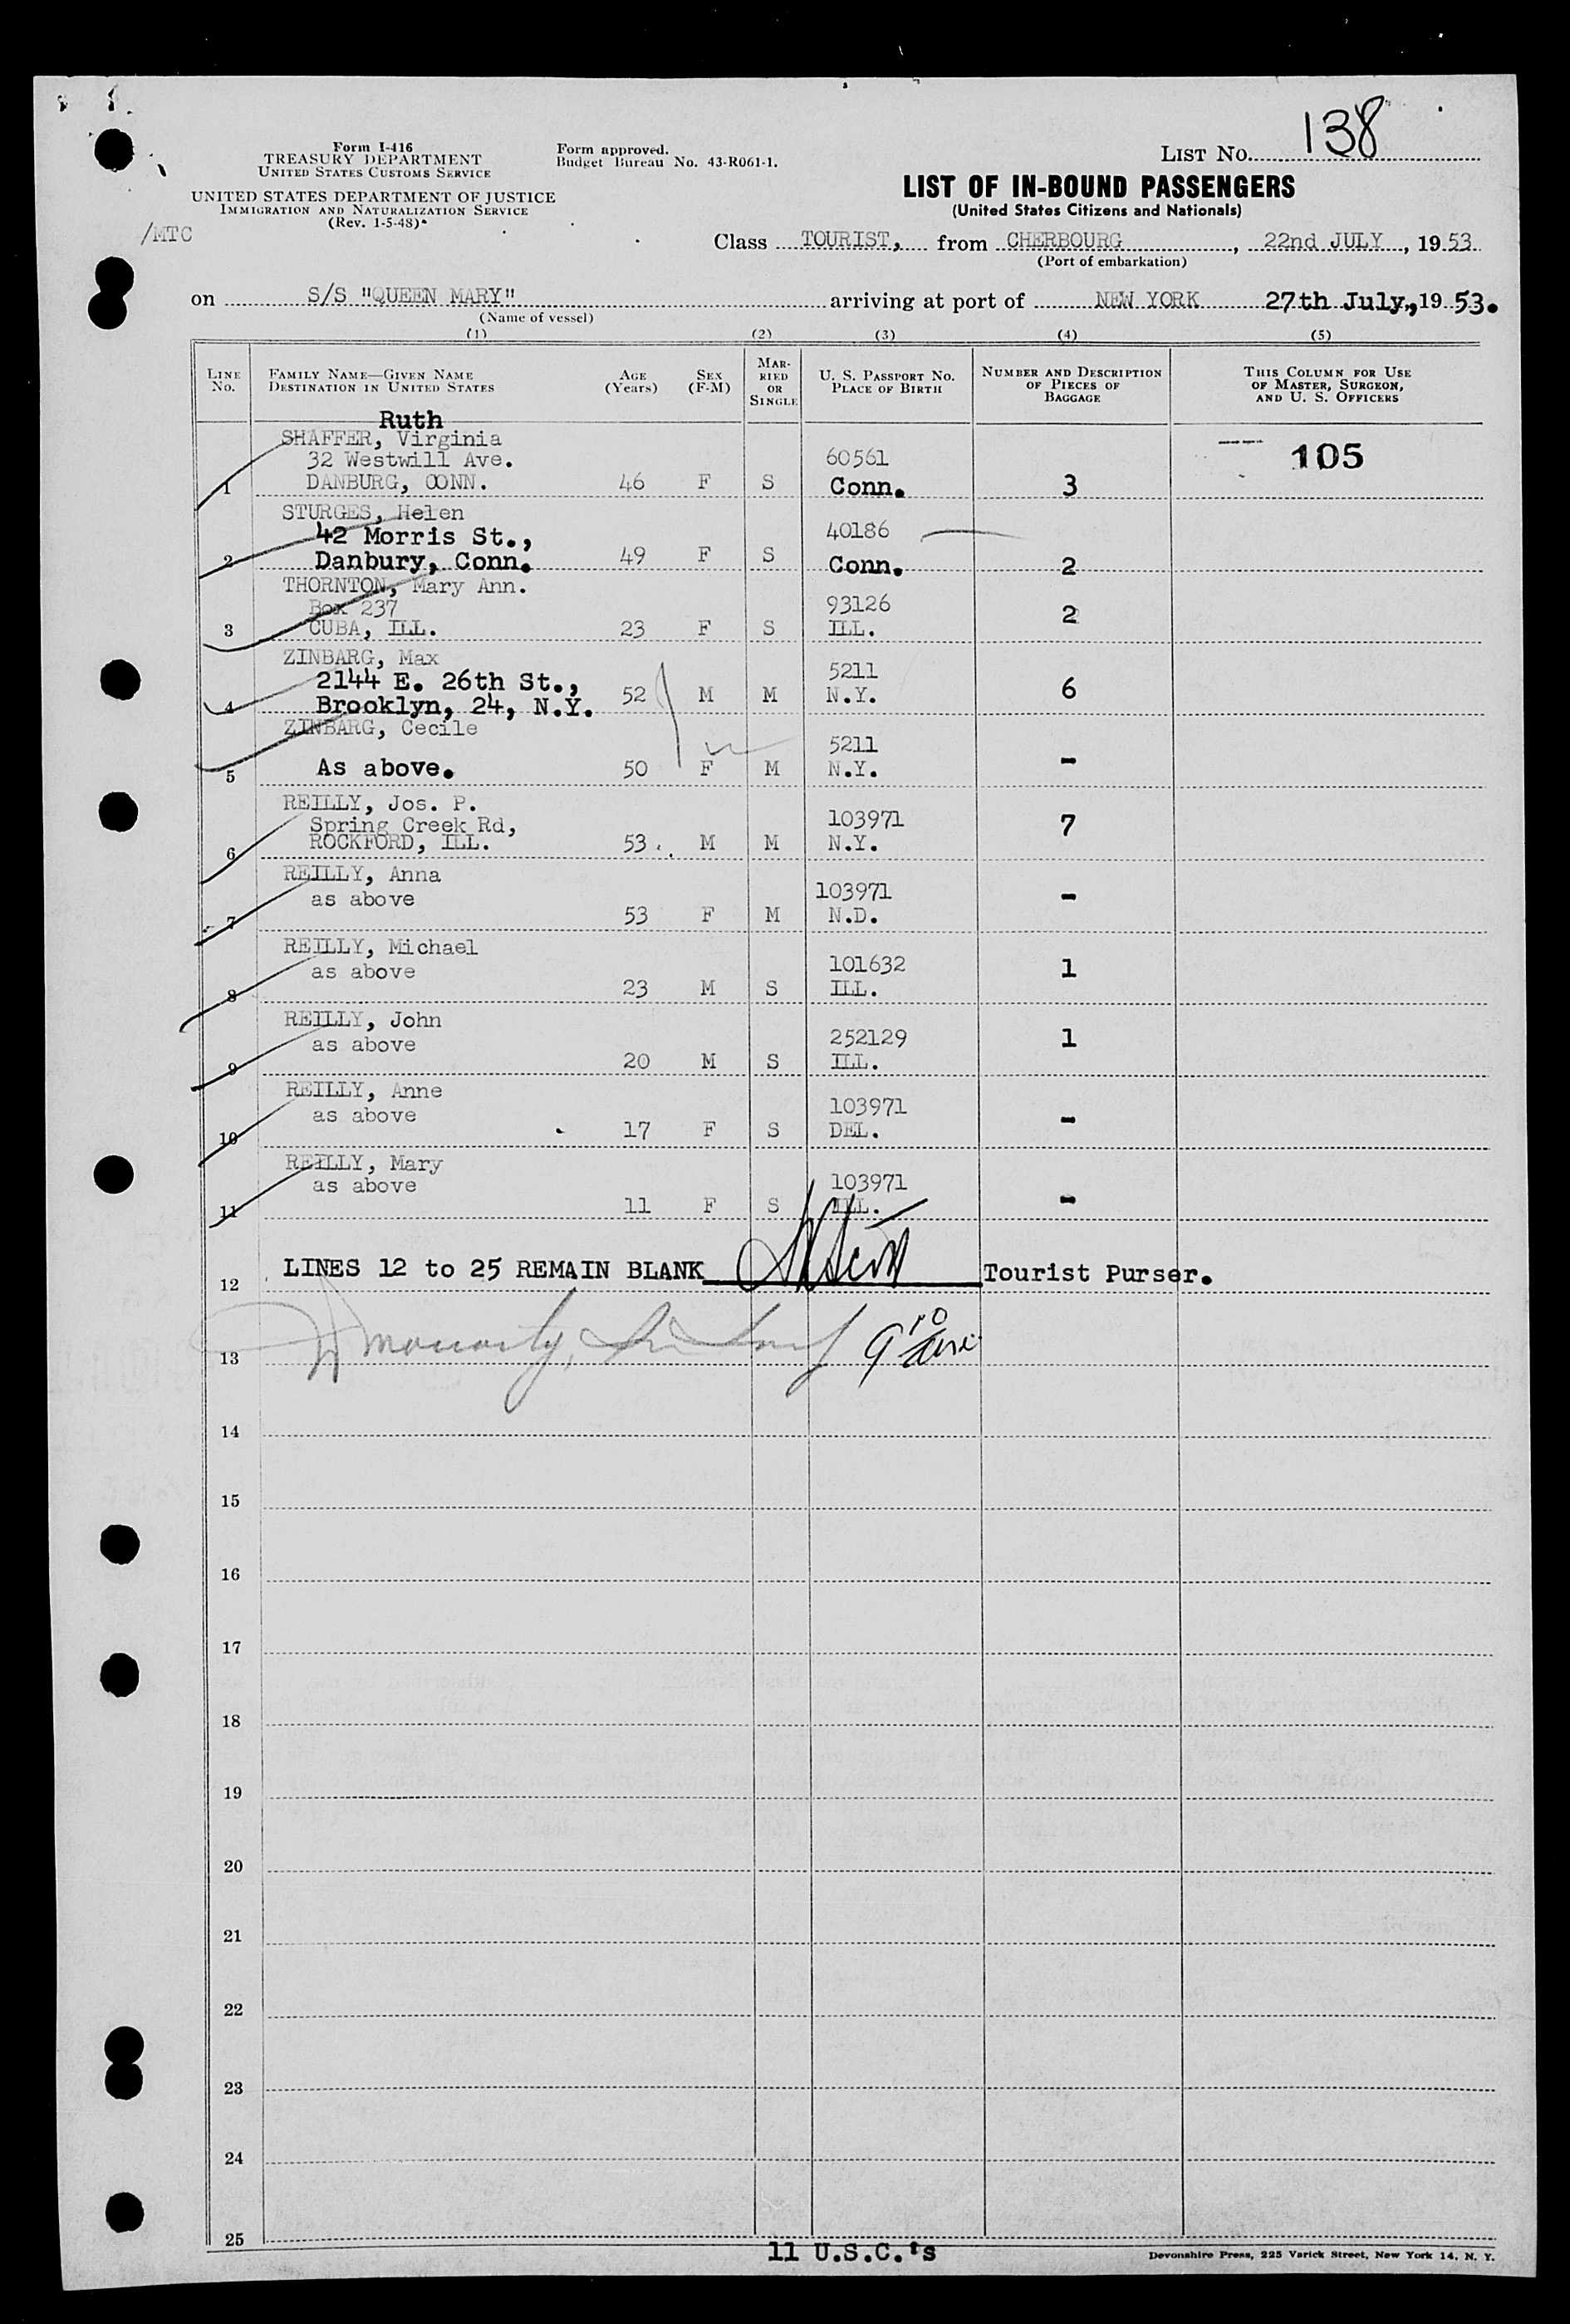 138
Form I-416
TREASURY DEPARTMENT
UNITED STATES CUSTOMS SERVICE
UNITED STATES DEPARTMENT OF JUSTICE
IMMIGRATION AND NATURALIZATION SERVICE
(Rev. 1-5-48)
/MTC
Form approved.
Budget Bureau No. 43-R061-1.
LIST NO.
LIST OF IN-BOUND PASSENGERS
(United States Citizens and Nationals)
Class TOURIST, from CHERBOURG, 22nd JULY, 1953
(Port of embarkation)
on S/S "QUEEN MARY" arriving at port of NEW YORK 27th July, 1953.
(Name of vessel)
(1) (2) (3) (4) (5)
LINE NO.
FAMILY NAME—GIVEN NAME
DESTINATION IN UNITED STATES
AGE (Years)
SEX (F-M)
MARRIED OR SINGLE
U. S. PASSPORT NO.
PLACE OF BIRTH
NUMBER AND DESCRIPTION OF PIECES OF BAGGAGE
THIS COLUMN FOR USE OF MASTER, SURGEON, AND U. S. OFFICERS
Ruth
SHAFFER, Virginia
32 Westwill Ave. 60561 105
1 DANBURG, CONN. 46 F S Conn. 3
STURGES, Helen
42 Morris St., 40186
2 Danbury, Conn. 49 F S Conn. 2
THORNTON, Mary Ann.
Box 237 93126 2
3 CUBA, ILL. 23 F S ILL.
ZINBARG, Max
2144 E. 26th St., 5211
4 Brooklyn, 24, N.Y. 52 M M N.Y. 6
ZINBARG, Cecile
5211 -
5 As above. 50 F M N.Y.
REILLY, Jos. P.
Spring Creek Rd, 103971 7
6 ROCKFORD, ILL. 53 M M N.Y.
REILLY, Anna
as above 103971 -
7 53 F M N.D.
REILLY, Michael
as above 101632 1
8 23 M S ILL.
REILLY, John
as above 252129 1
9 20 M S ILL.
REILLY, Anne
as above 103971 -
10 17 F S DEL.
REILLY, Mary
as above 103971 -
11 11 F S ILL.
12 LINES 12 to 25 REMAIN BLANK Tourist Purser.
13
14
15
16
17
18
19
20
21
22
23
24
25
11 U.S.C.'s
Devonshire Press, 225 Varick Street, New York 14, N. Y.